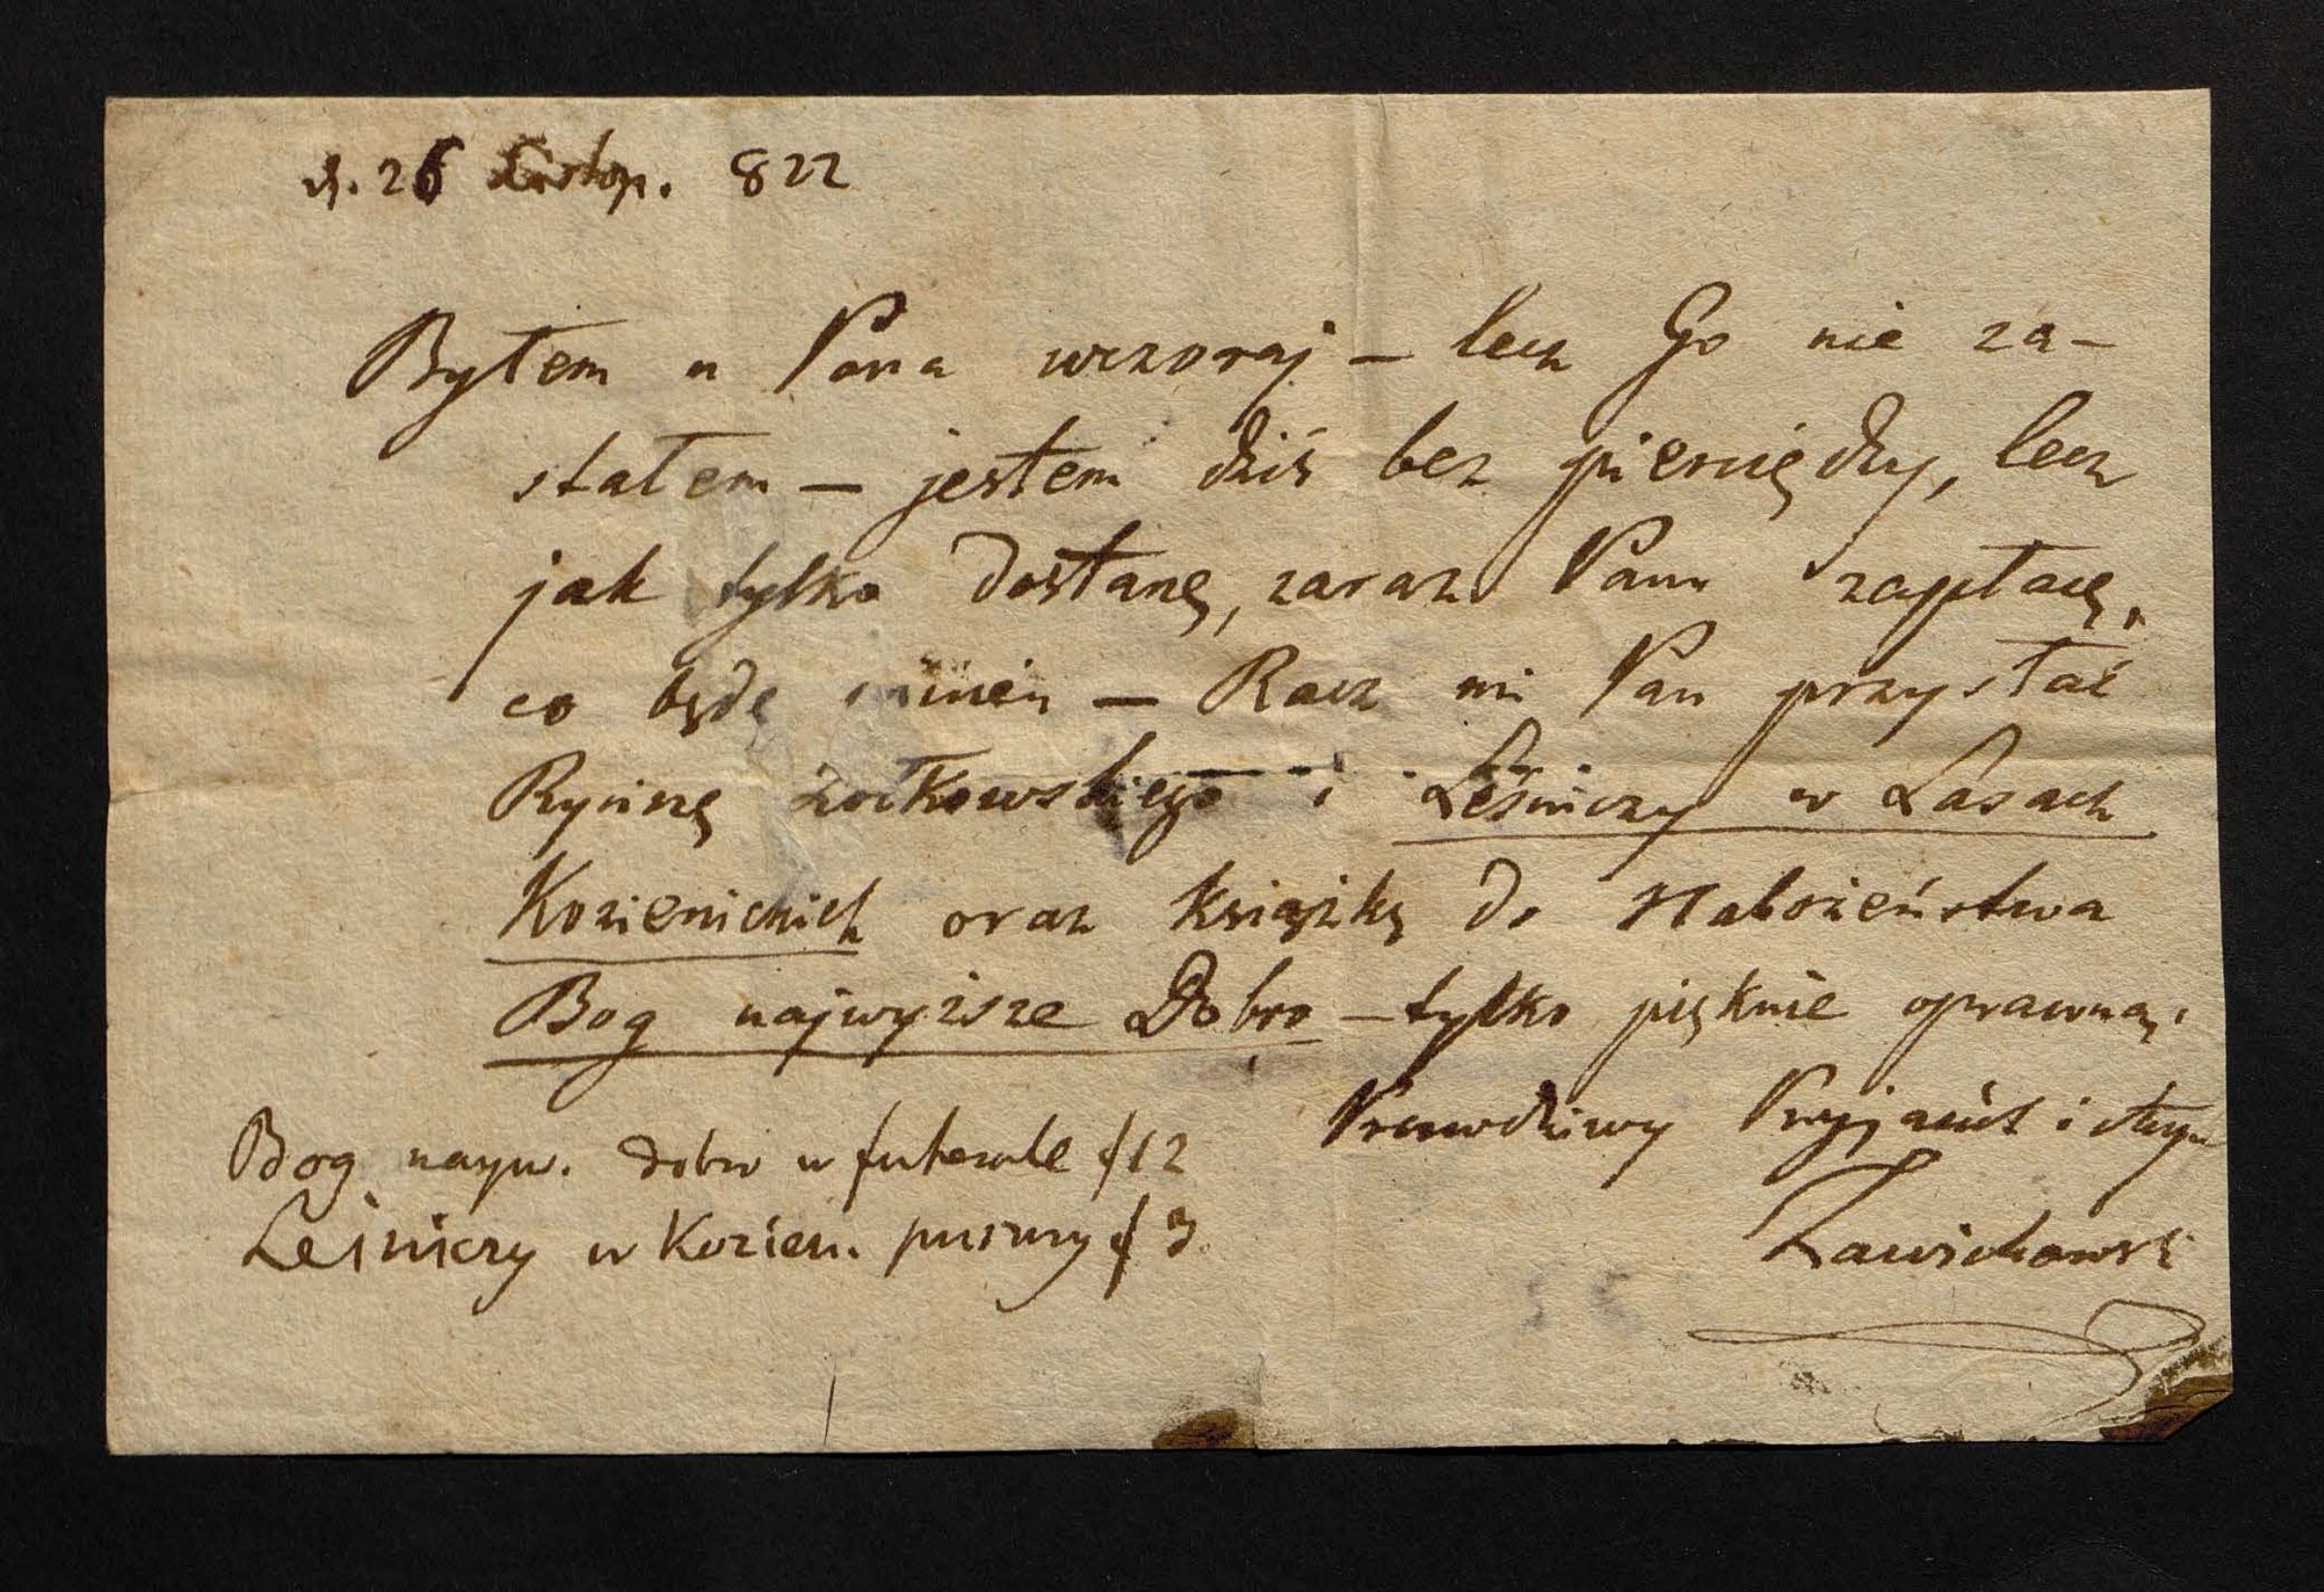 d. 26 Listop. 822
Byłem u Pana wczoraj – lecz Go nie za-
stałem – jestem dziś bez pieniędzy, lecz
jak tylko dostanę, zaraz Panu zapłacę,
co będę winien – Racz mi Pan przysłać
Rycinę Żołkowskiego i Leśniczy w Lasach
Kozienickich oraz książkę do Nabożeństwa
Bog najwyższe Dobro – tylko pięknie oprawną.
Prawdziwy Przyjaciel i sługa
Zawichowski
Bog nayw. dobro w futerale f 12
Leśniczy w Kozien. puszczy f 3